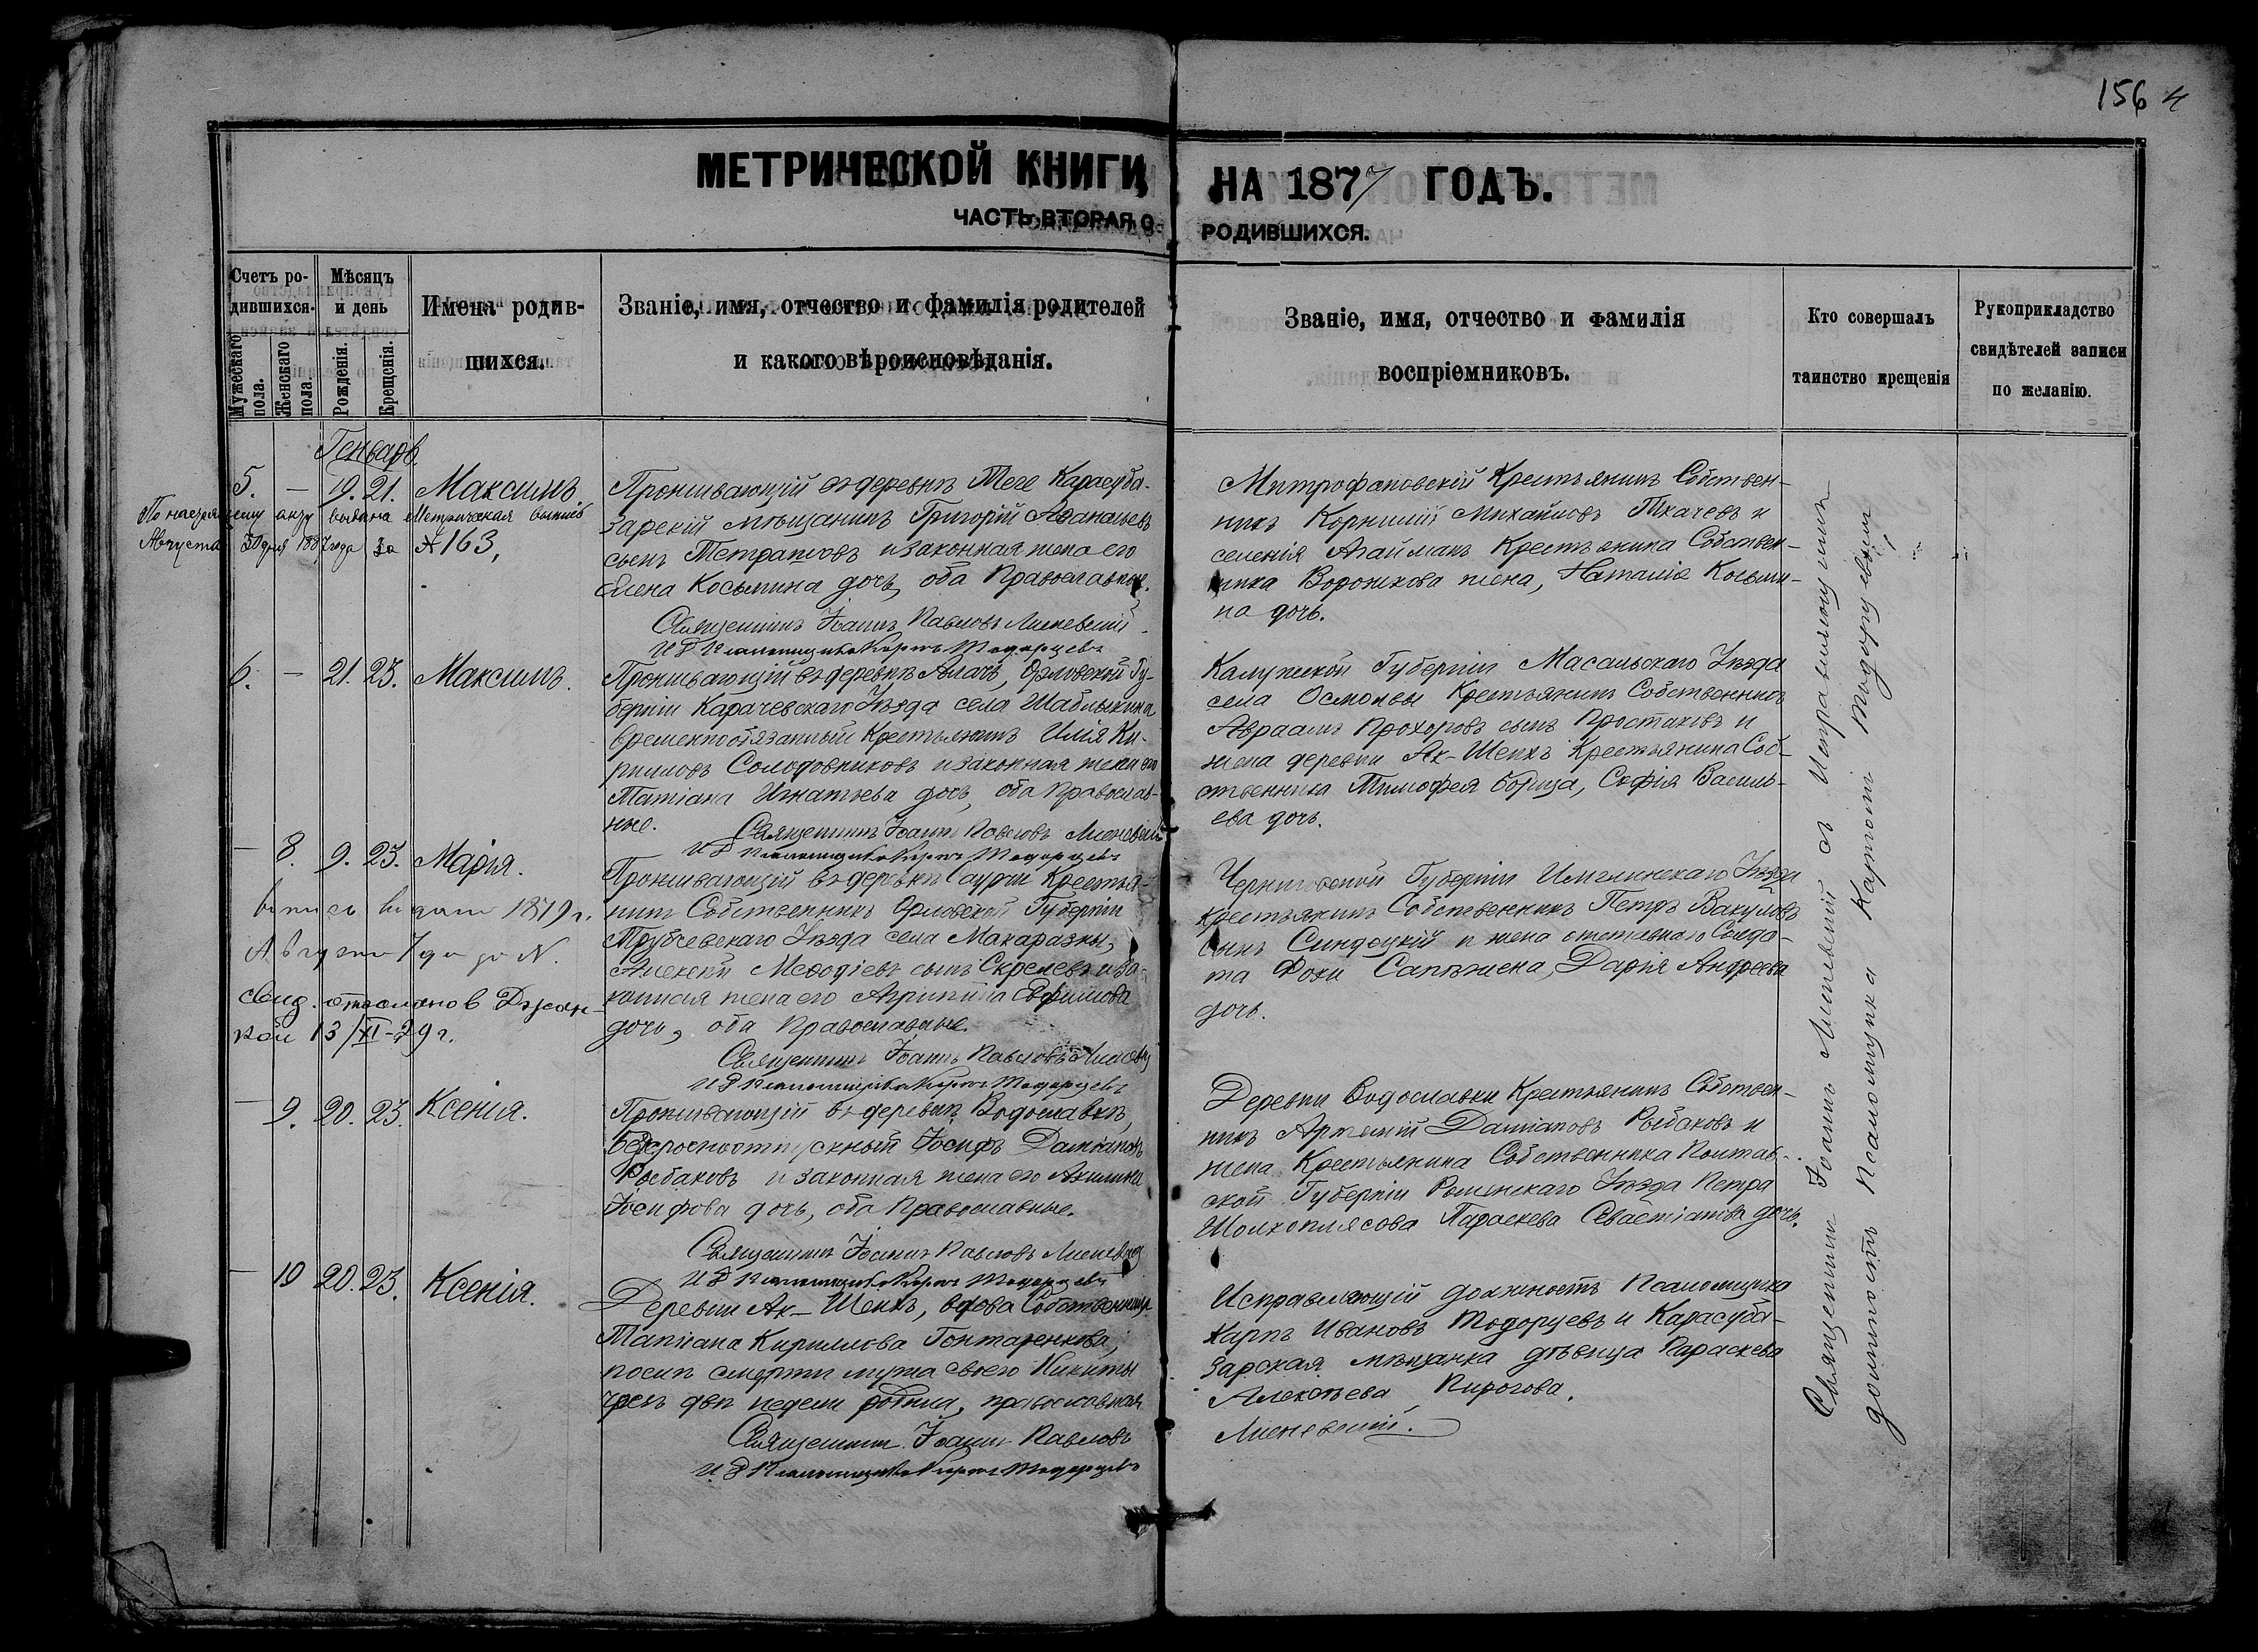 156 4
МЕТРИЧЕСКОЙ КНИГИ НА 1877 ГОДЪ.
ЧАСТЬ ВТОРАЯ О РОДИВШИХСЯ.
Счетъ ро-
дившихся.
Мужескаго пола.
Женскаго пола.
Мѣсяцъ
и день
Рожденія.
Крещенія.
Имена родив-
шихся.
Званіе, имя, отчество и фамилія родителей
и какого вѣроисповѣданія.
Званіе, имя, отчество и фамилія
воспріемниковъ.
Кто совершалъ
таинство крещенія
Рукоприкладство
свидѣтелей записи
по желанію.
Генварь
5. — 19. 21. Максимъ.
По настоящему акту выдана Метрическая выпись
Августа 30 дня 1887 года за № 163,
Проживающій въ деревнѣ Теге Карасуба-
зарскій мѣщанинъ Григорій Аѳанасьевъ
сынъ и законная жена его
Елена Косьмина дочь, оба Православные.
Священникъ Іоаннъ Павловъ
И Д Псаломщика Карпъ Тодорцевъ
Митрофановскій Крестьянинъ Собствен-
никъ Корнилій Михайловъ Ткачевъ и
селенія Агайманъ Крестьянина Собствен-
ника Воронкова жена, Наталія Косьми-
на дочь.
6. — 21. 23. Максимъ.
Проживающій въ деревнѣ Алачъ, Орловской Гу-
берніи Карачевскаго Уѣзда села Шаблыкина
временнообязанный Крестьянинъ Илія Ки-
риловъ Солодовниковъ и законная жена его
Татіана Игнатьева дочь, оба Православ-
ные.
Священникъ Іоаннъ Павловъ
И Д Псаломщика Карпъ Тодорцевъ
Калужской Губерніи Масальскаго Уѣзда
села Крестьянинъ Собственникъ
Авраамъ Прохоровъ сынъ Простаковъ и
жена деревни Ак-Шеихъ Крестьянина Соб-
ственника Тимофея Борща, Софія Василь-
ева дочь.
— 8. 9. 23. Марія.
выпись выдана 1879 г.
Августа 7 дня за N.
свид. отослано в Джан-
кой 13/XI-29 г.
Проживающій въ деревнѣ Крестья-
нинъ Собственникъ Орловской Губерніи
Трубчевскаго Уѣзда села
Алексѣй Меѳодіевъ сынъ и за-
конная жена его Агрипина Евфимова
дочь, оба Православные.
Священникъ Іоаннъ Павловъ
И Д Псаломщика Карпъ Тодорцевъ
Черниговской Губерніи Уѣзда
крестьянинъ Собственникъ Петръ Вакуловъ
сынъ и жена отставнаго Солда-
та Фоки Дарія Андреева
дочь.
— 9. 20. 23. Ксенія.
Проживающій въ деревнѣ Водославкѣ,
безсрочноотпускный Іосифъ Даміановъ
Рыбаковъ и законная жена его Акилина
Іосифова дочь, оба Православные.
Священникъ Іоаннъ Павловъ
И Д Псаломщика Карпъ Тодорцевъ
Деревни Водославки Крестьянинъ Собствен-
никъ Артемій Даміановъ Рыбаковъ и
жена Крестьянина Собственника Полтав-
ской Губерніи Роменскаго Уѣзда Петра
Параскева Севастіанова дочь.
— 10 20. 23. Ксенія.
Деревни Ак-Шеихъ, вдова Собственница
Татіана Кириллова Гонтаренкова,
послѣ смерти мужа своего Никиты
чрезъ двѣ недели родила, православная
Священникъ Іоаннъ Павловъ
И Д Псаломщика Карпъ Тодорцевъ
Исправляющій должность Псаломщика
Карпъ Ивановъ Тодорцевъ и Карасуба-
зарская мѣщанка дѣвица Параскева
Алексѣева Пирогова.
Священникъ Іоаннъ съ Исправляющимъ
должность Псаломщика Карпомъ Тодорцевымъ